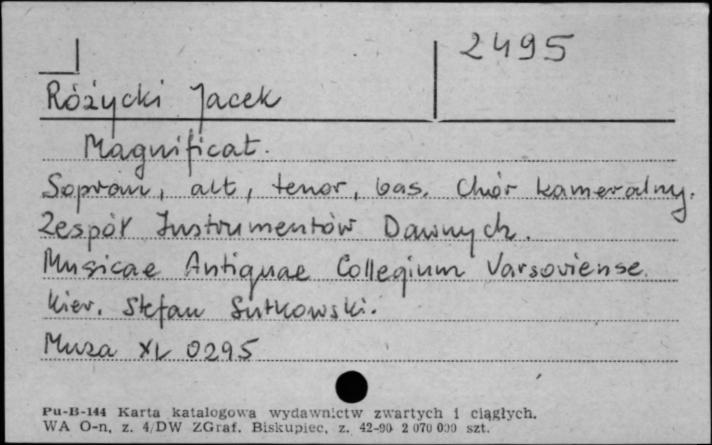 2495
Różycki Jacek
Magnificat.
Sopran, alt, tenor, bas. Chór kameralny.
Zespół Instrumentów Dawnych.
Musicae Antiquae Collegium Varsoviense.
Kier. Stefan Sutkowski.
Muza XL 0295
Pu-B-144 Karta katalogowa wydawnictw zwartych i ciągłych.
WA O-n, z. 4/DW ZGraf. Biskupiec, z. 42-90 2 070 000 szt.